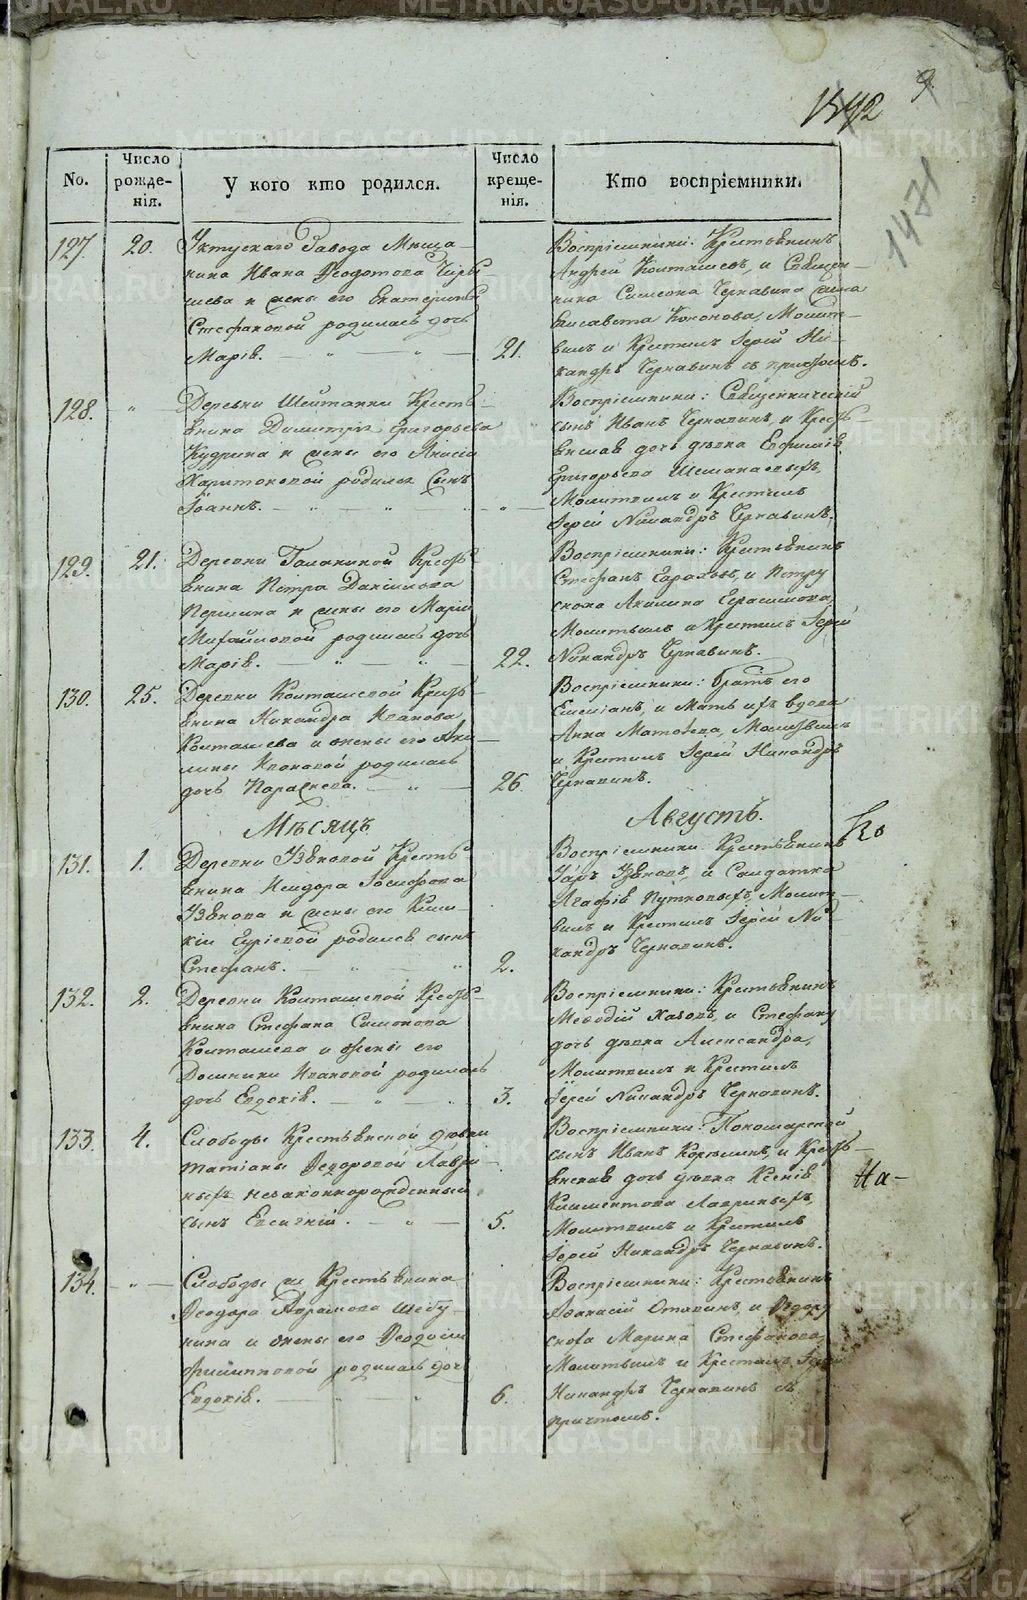 1542
9
1471
No.
Число рожде-нія.
У кого кто родился.
Число креще-нія.
Кто воспріемники.
127.
20.
Уктускаго Завода Мѣща-
нина Ивана Ѳеодотова
жены его Екатерины
Стефановой родилась дочь
Марія.
21.
Воспріемники: Крестьянинъ
Андрей Колташевъ, и Священ-
ника Симеона Чернавина жена
Елисавета Кононова, Молит-
вилъ и Крестилъ Іерей Ни-
кандръ Чернавинъ съ причтомъ.
128.
"
Деревни Шейтанки Кресть-
янина Димитрія Григорьева
Кудрина и жены его
Харитоновой родился сынъ
Іоаннъ.
"
Воспріемники: Священническій
сынъ Иванъ Чернавинъ, и Кресть-
янская дочь дѣвка Евфимія
Григорьева
Молитвилъ и Крестилъ
Іерей Никандръ Чернавинъ.
129.
21.
Деревни Крестья-
янина Петра Даніилова
и жены его Маріи
Михайловой родилась дочь
Марія.
22.
Воспріемники: Крестьянинъ
Стефанъ и Петру
сноха Акилина Герасимова,
Молитвилъ и Крестилъ Іерей
Никандръ Чернавинъ.
130.
25.
Деревни Колташевой Кресть-
янина Никандра Иванова
Колташева и жены его Аки-
лины Ивановой родилась
дочь Параскева.
26.
Воспріемники: братъ его
Емеліанъ, и мать ихъ вдова
Анна Матѳеева, Молитвилъ
и Крестилъ Іерей Никандръ
Чернавинъ.
Мѣсяцъ
Августъ.
Ко
131.
1.
Деревни Крестья-
янина Исидора Іосифова
и жены его
родился сынъ
Стефанъ.
2.
Воспріемники: Крестьянинъ
и Солдатка
Агафія Путковыхъ, Молит-
вилъ и Крестилъ Іерей Ни-
кандръ Чернавинъ.
132.
2.
Деревни Колташевой Кресть-
янина Стефана Симонова
Колташева и жены его
Домники Ивановой родилась
дочь Евдокія.
3.
Воспріемники: Крестьянинъ
Меѳодій и Стефану
дочь дѣвка Александра,
Молитвилъ и Крестилъ
Іерей Никандръ Чернавинъ.
133.
4.
Слободы Крестьянской дѣвки
Татіаны Ѳедоровой Лаври-
ныхъ незаконнорожденный
сынъ Евсигній.
5.
Воспріемники: Пономарской
сынъ Иванъ и Кресть-
янская дочь дѣвка Ксенія
Климентова Лавриныхъ,
Молитвилъ и Крестилъ
Іерей Никандръ Чернавинъ.
На-
134.
"
Слободы же Крестьянина
Ѳеодора Абрамова
и жены его Ѳеодосіи
Филипповой родилась дочь
Евдокія.
6.
Воспріемники: Крестьянинъ
Аѳанасій и Ѳедору
сноха Марина Стефанова,
Молитвилъ и Крестилъ Іерей
Никандръ Чернавинъ съ
причтомъ.
METRIKI.GASO-URAL.RU